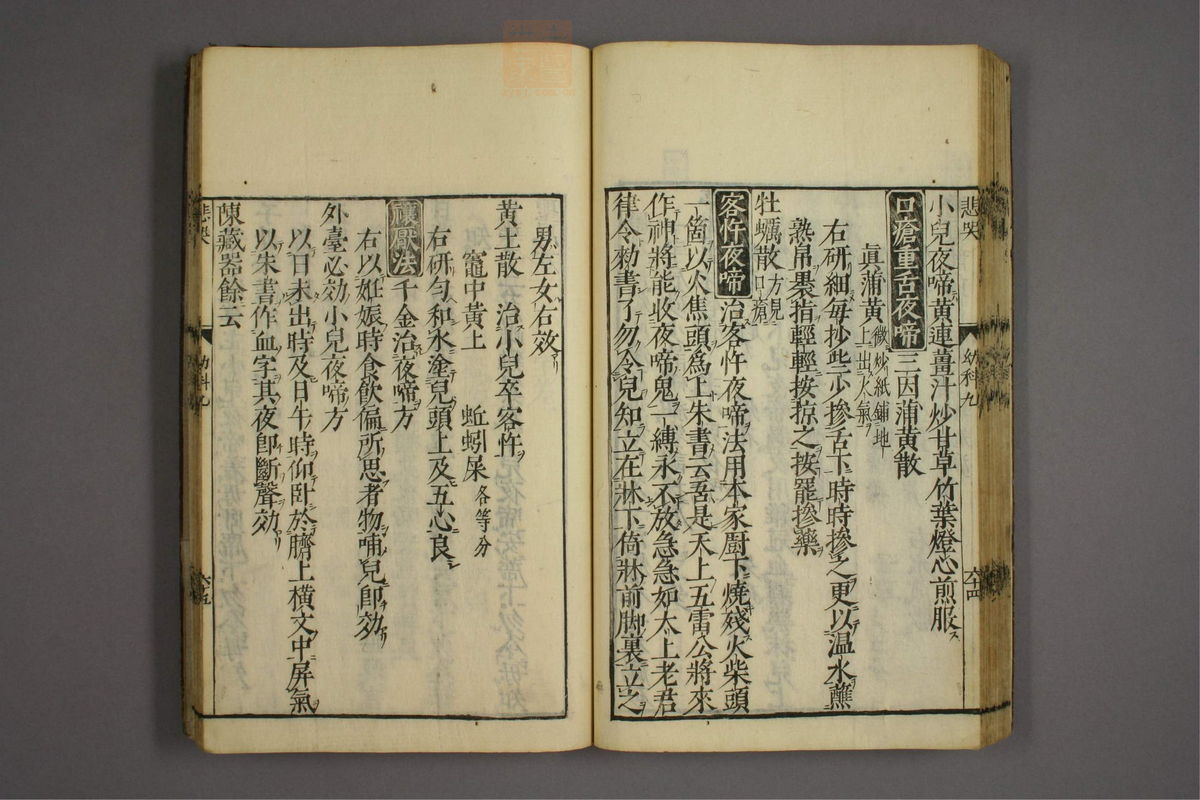 悲哭
幼科九
六十四
小兒夜啼黃連薑汁炒甘草竹葉燈心煎服ス
口瘡重舌夜啼 三因蒲黃散
眞蒲黃 微炒紙鋪地上出火氣
右研細每抄些少摻舌下時時摻之更以温水蘸
熟帛裹指輕輕按掠之按罷摻藥
牡蠣散 方見口瘡
客忤夜啼 治客忤夜啼法用本家厨下燒殘火柴頭
一箇以火焦頭爲上朱書云吾是天上五雷公將來
作神將能收夜啼鬼一縛永不放急急如太上老君
律令勑書了勿令兒知立在牀下倚牀前脚裏立之
男左女右效
黃土散 治小兒卒客忤
竈中黃土 蚯蚓屎 各等分
右研勻和水塗兒頭上及五心良
禳厭法 千金治夜啼方
右以姙娠時食飲偏所思者物哺兒卽効
外臺必効小兒夜啼方
以日未出時及日午時仰卧於臍上橫文中屏氣
以朱書作血字其夜卽斷聲効
陳藏器餘云
悲哭
幼科九
六十五